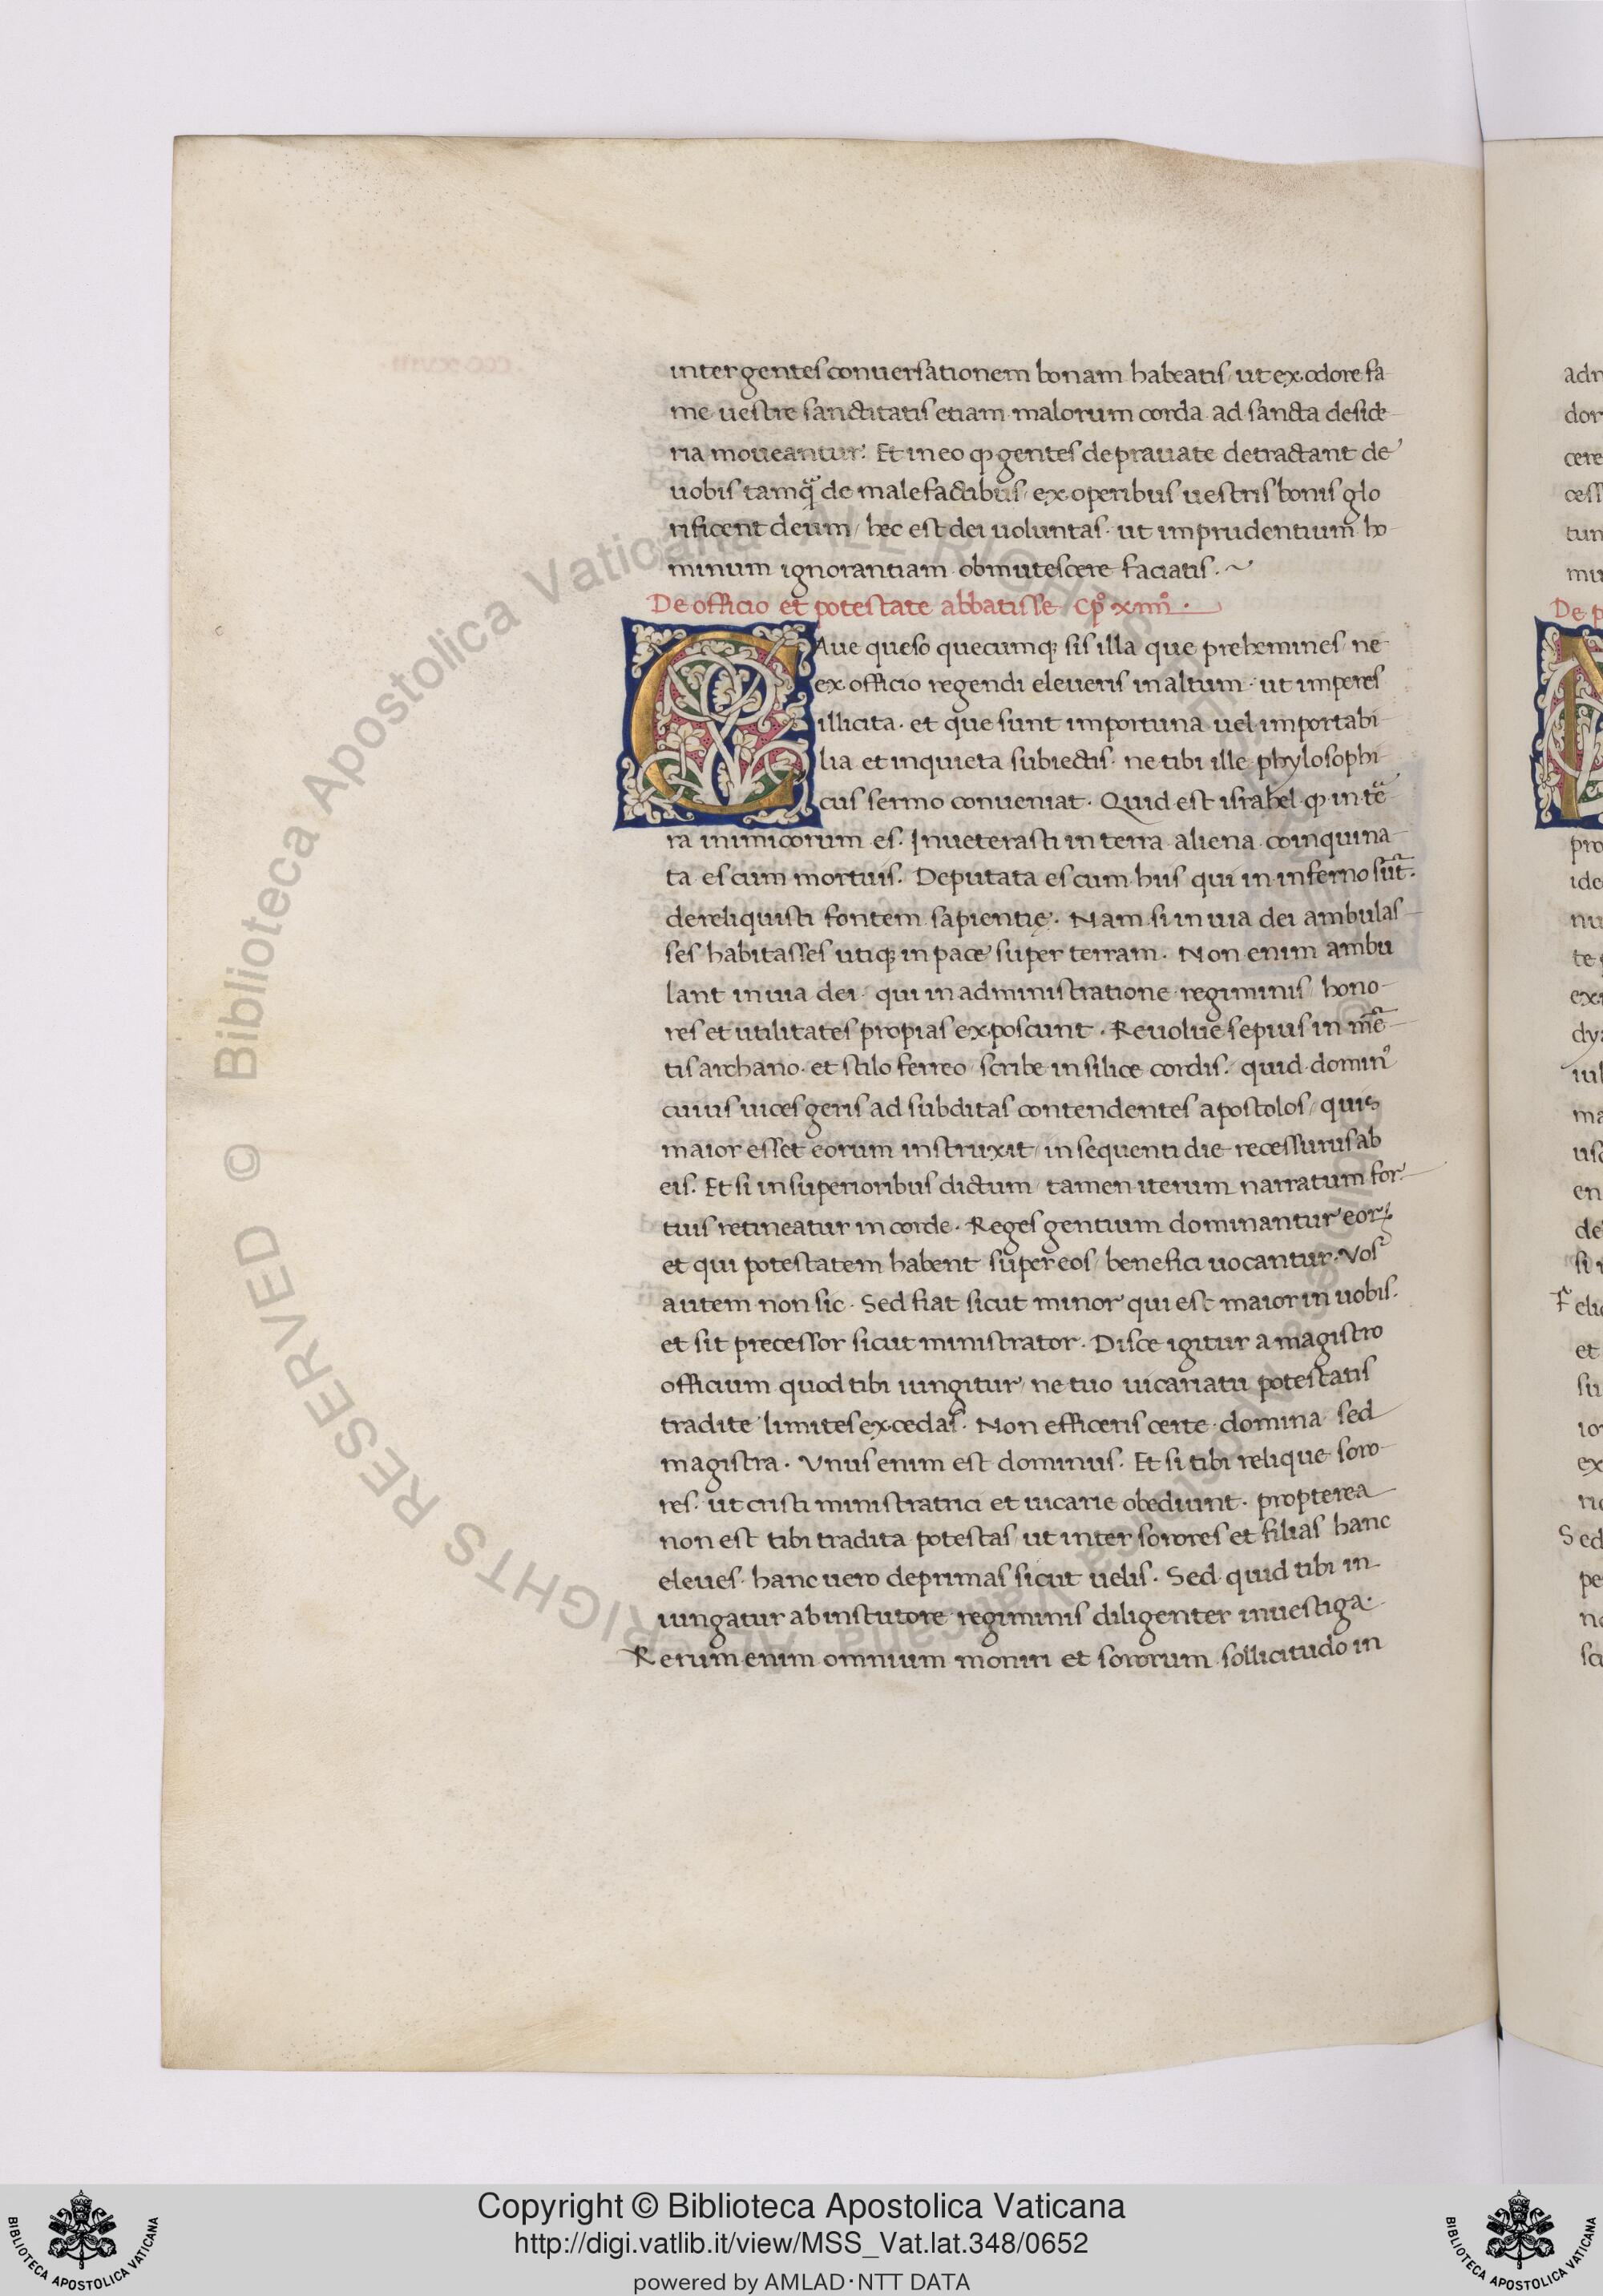 inter gentes conuersationem bonam habeatis / ut ex odore fa
me uestre sanctitatis etiam malorum corda ad sancta deside
ria moueantur. Et in eo qp gentes deprauate detractant de
uobis tamq̃ de malefactibus / ex operibus uestris bonis glo
rificent deum / hec est dei uoluntas. ut imprudentium ho
minum ignorantiam obmutescere faciatis. ~
De officio et potestate abbatisse Cp° xiiii°.
CAue queso quecumq; sis illa que prehemines / ne
ex officio regendi eleueris in altum. ut imperes
illicita. et que sunt importuna uel importabi
lia et inquieta subiectis. ne tibi ille phylosophi
cus sermo conueniat. Quid est israhel qp in te᷒
ra inimicorum es. Inueterasti in terra aliena coinquina
ta es cum mortuis. Deputata es cum hiis qui in inferno sūt.
dereliquisti fontem sapientię. Nam si in uia dei ambulas
ses habitasses utiq; in pace super terram. Non enim ambu
lant in uia dei. qui in administratione regiminis / hono
res et utilitates propias exposcunt. Reuolue sepius in mē
tis archano. et stilo ferreo / scribe in silice cordis. quid domin᷒
cuius uices geris ad subditas contendentes apostolos / quis
maior esset eorum instruxit / in sequenti die recessurus ab
eis. Et si in superioribus dictum / tamen iterum narratum for
tius retineatur in corde. Reges gentium dominantur eorꝝ
et qui potestatem habent super eos / benefici uocantur. Vos
autem non sic. Sed fiat sicut minor qui est maior in uobis.
et sit precessor sicut ministrator. Disce igitur a magistro
officium quod tibi iungitur / ne tuo uicariatu potestatis
tradite limites excedas. Non efficeris certe domina sed
magistra. Vnus enim est dominus. Et si tibi relique soro
res. ut cristi ministratrici et uicarie obediunt. propterea
non est tibi tradita potestas / ut inter sorores et filias hanc
eleues. hanc uero deprimas sicut uelis. Sed quid tibi in
iungatur ab instutore regiminis diligenter inuestiga.
Rerum enim omnium moniri et sororum sollicitudo in
© Biblioteca Apostolica Vaticana ALL RIGHTS RESERVED
Copyright © Biblioteca Apostolica Vaticana
http://digi.vatlib.it/view/MSS_Vat.lat.348/0652
powered by AMLAD·NTT DATA
BIBLIOTECA APOSTOLICA VATICANA
BIBLIOTECA APOSTOLICA VATICANA